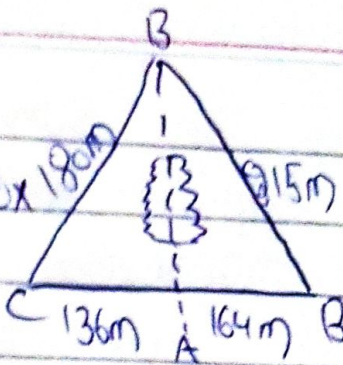 B
x 180m
215m
C 136m A 164m B